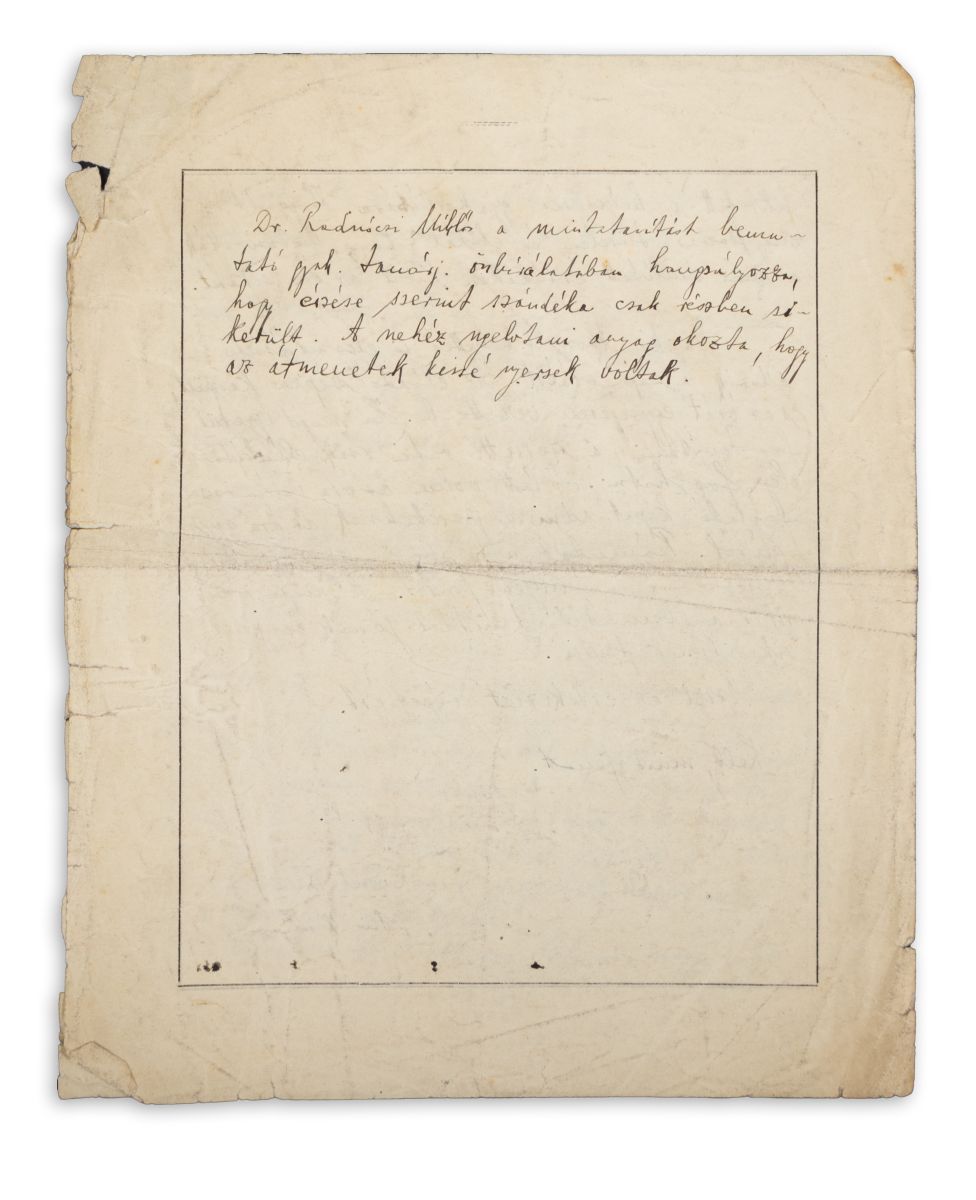 Dr. Radnóczi Miklós a mintatanítást bemu-
tató gyak. tanárj. önbírálatában hangsúlyozza,
hogy érzése szerint szándéka csak részben si-
került. A nehéz nyelvtani anyag okozta, hogy
az átmenetek kissé nyersek voltak.